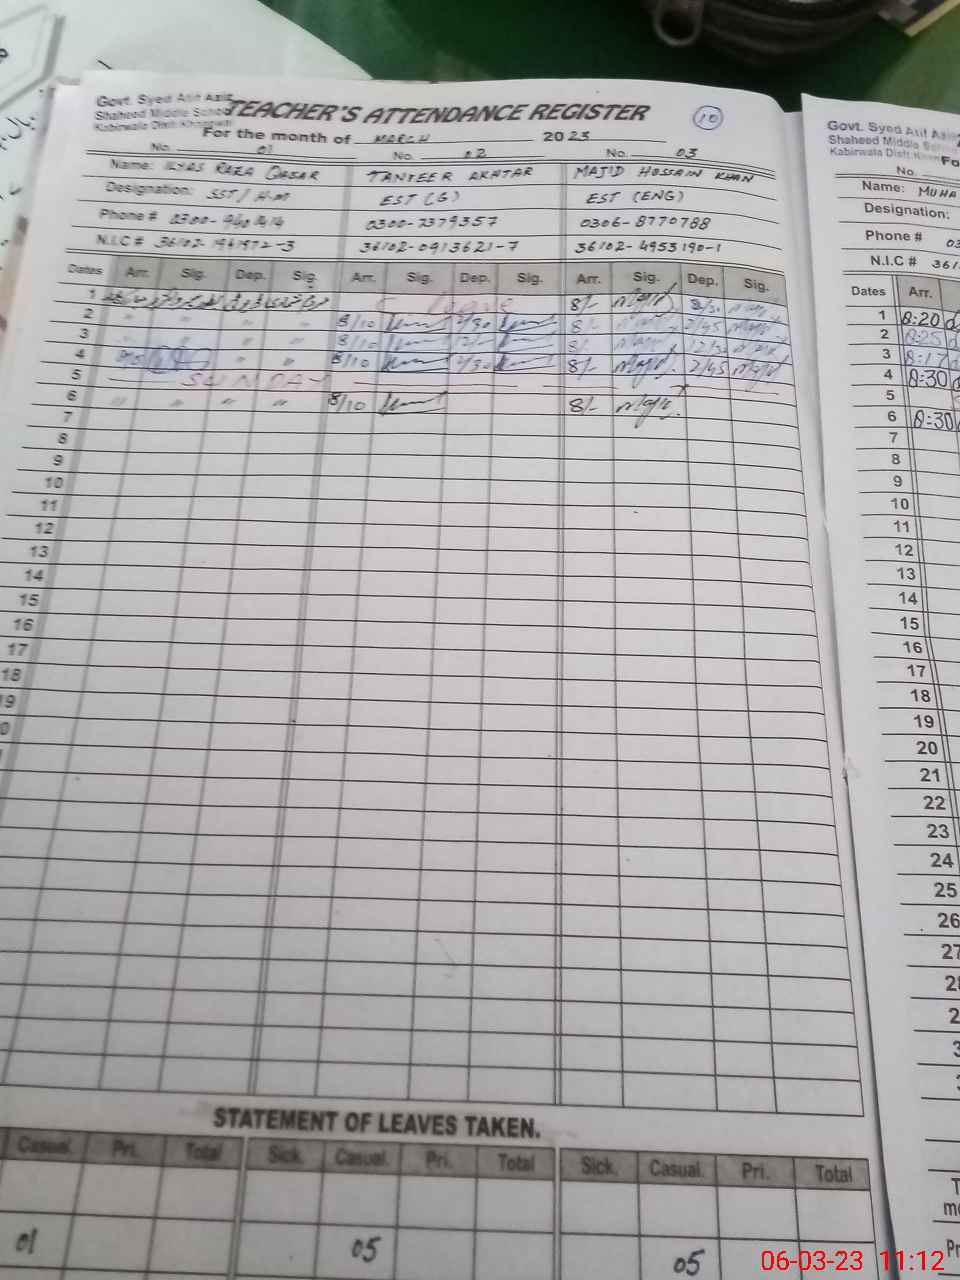 Govt. Syed Atif Aziz
Shaheed Middle School
Kabirwala Distt: Khanewal
TEACHER'S ATTENDANCE REGISTER
10
For the month of MARCH 2023
No. 01 No. 02 No. 03
Name: ILYAS RAZA QAISAR TANVEER AKHTAR MAJID HUSSAIN KHAN
Designation: SST / H.M EST (G) EST (ENG)
Phone # 0300- 0300-7379357 0306-8770788
N.I.C # 36102- -3 36102-0913621-7 36102-4953190-1
Dates Arr. Sig. Dep. Sig. Arr. Sig. Dep. Sig. Arr. Sig. Dep. Sig.
1 Leave 8/- Majid
2 " " " " 8/10 2/30 8/- Majid 2/45 Majid
3 " " " " 8/10 12/- 8/- Majid 12/30 Majid
4 " " 8/10 2/30 8/- Majid 2/45 Majid
5 SUNDAY
6 " " " " 8/10 8/- Majid
7
8
9
10
11
12
13
14
15
16
17
18
19
0
STATEMENT OF LEAVES TAKEN.
Casual. Pri. Total Sick. Casual. Pri. Total Sick. Casual. Pri. Total
01 05 05
Govt. Syed Atif Aziz
Shaheed Middle
Kabirwala Distt:
Fo
No.
Name: MUHA
Designation:
Phone # 03
N.I.C # 361
Dates Arr.
1 8:20
2 8:25
3 8:17
4 8:30
5
6 8:30
7
8
9
10
11
12
13
14
15
16
17
18
19
20
21
22
23
24
25
26
27
28
2
3
3
T
mo
Pr
06-03-23 11:12